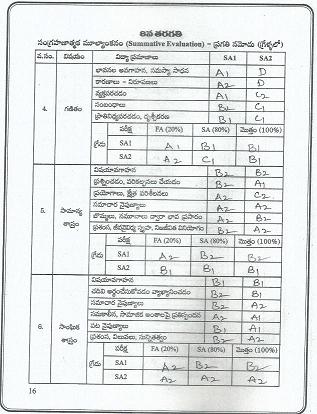 8వ తరగతి
సంగ్రహణాత్మక మూల్యాంకనం (Summative Evaluation) - ప్రగతి నమోదు (గ్రేడ్లలో)
వ.సం. విషయం విద్యా ప్రమాణాలు SA1 SA2
భావనల అవగాహన, సమస్యా సాధన A1 D
కారణాలు - నిరూపణలు A2 D
వ్యక్తపరచడం A1 C2
4. గణితం సంబంధాలు B2 C1
ప్రాతినిధ్యపరచడం, దృశ్యీకరణ B1 C1
పరీక్ష FA (20%) SA (80%) మొత్తం (100%)
గ్రేడు SA1 A1 B1 B1
SA2 A2 C1 B1
విషయావగాహన B2 B2
ప్రశ్నించడం, పరికల్పనలు చేయడం B2 A1
ప్రయోగాలు, క్షేత్ర పరిశీలనలు C2 C2
5. సామాన్య శాస్త్రం సమాచార నైపుణ్యాలు A2 A2
బొమ్మలు, నమూనాల ద్వారా భావ ప్రసారం A2 B2
ప్రశంస, జీవవైవిధ్య స్పృహ, నిజజీవిత వినియోగం B2 A1
పరీక్ష FA (20%) SA (80%) మొత్తం (100%)
గ్రేడు SA1 A2 B2 B2
SA2 B1 B1 B1
విషయావగాహన B1 B1
చదివి అర్థంచేసుకోవడం వ్యాఖ్యానించడం B2 B1
సమాచార నైపుణ్యాలు B2 A2
6. సాంఘిక శాస్త్రం సమకాలీన, సామాజిక అంశాలపై ప్రతిస్పందన A2 A1
పట నైపుణ్యాలు B1 A1
ప్రశంస, విలువలు, సున్నితత్వం B2 A2
పరీక్ష FA (20%) SA (80%) మొత్తం (100%)
గ్రేడు SA1 A2 B2 B2
SA2 A2 A2 A2
16